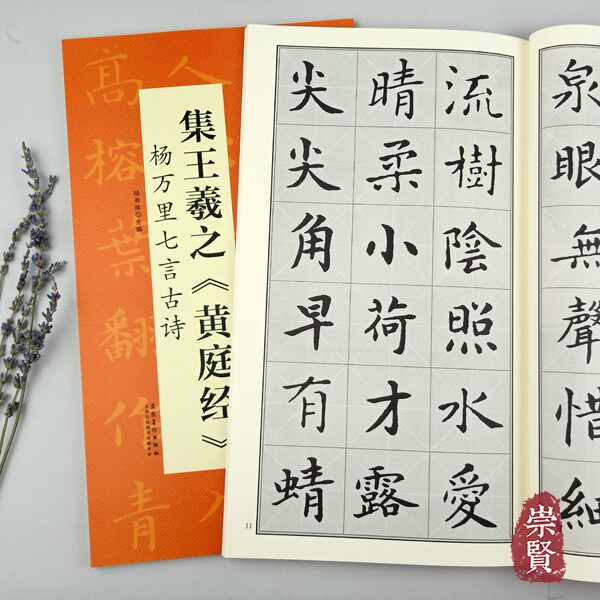 集王羲之《黄庭经》
杨万里七言古诗
陆有珠 主编
安徽美术出版社
人
髙榕葉翻作青
泉眼無聲惜細
流樹陰照水愛
晴柔小荷才露
尖尖角早有蜻
11
崇賢